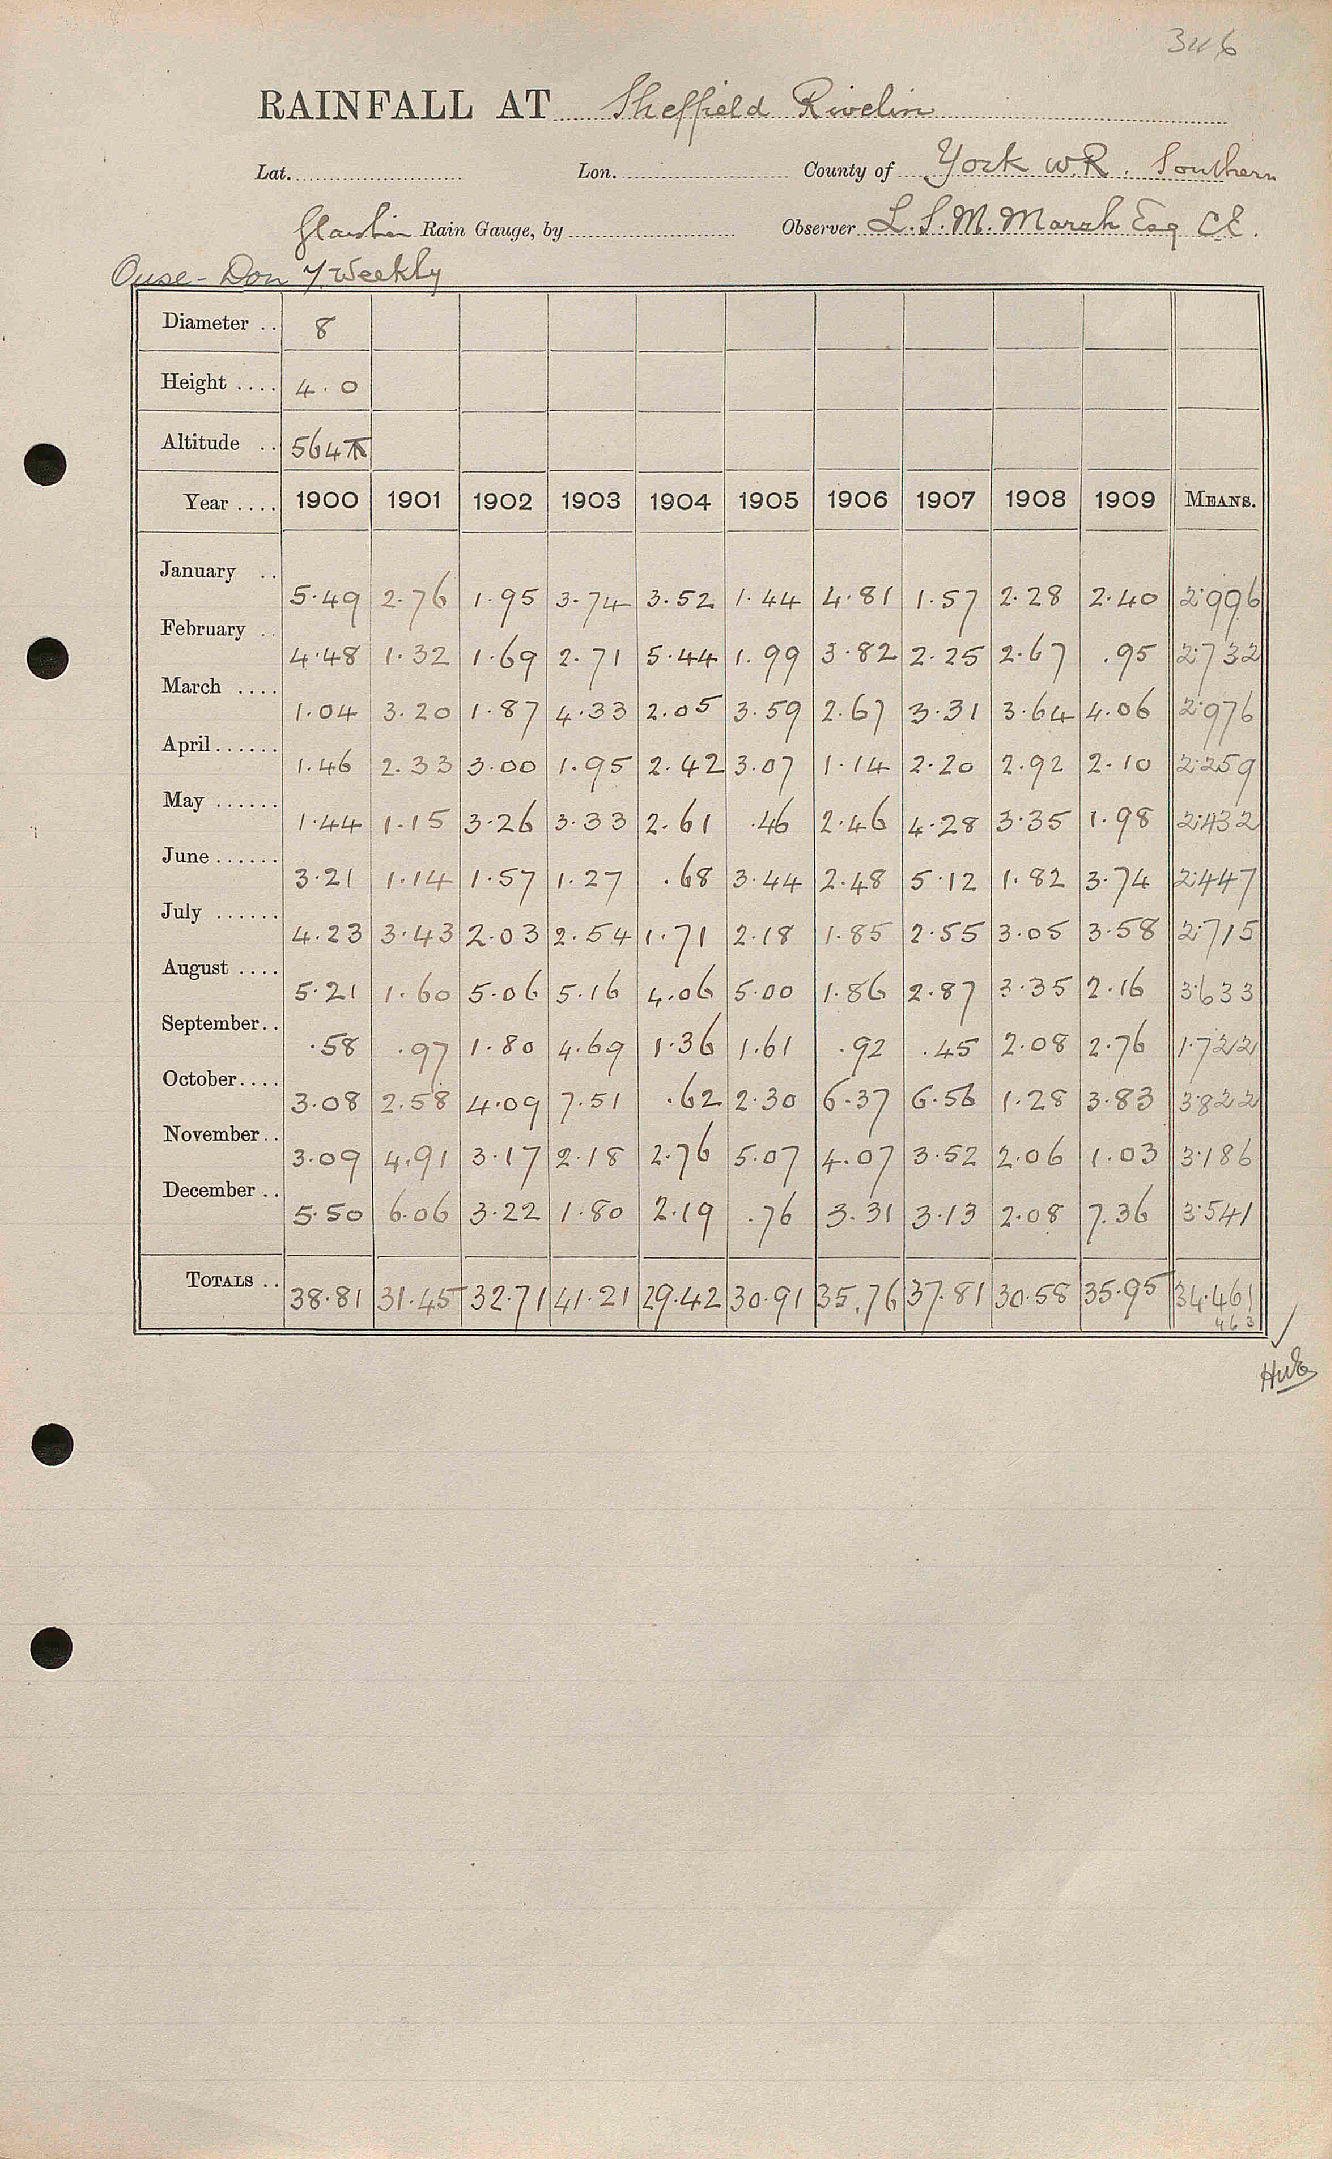 346
RAINFALL AT Sheffield Rivelin
Lat. Lon. County of York W.R. Southern
Glaisher Rain Gauge, by Observer L.S.M. Marsh Esq C.E.
Ouse - Don 7 Weekly
Diameter .. 8
Height .... 4.0
Altitude .. 564
Year .... 1900 1901 1902 1903 1904 1905 1906 1907 1908 1909 MEANS.
January .. 5.49 2.76 1.95 3.74 3.52 1.44 4.81 1.57 2.28 2.40 2.996
February .. 4.48 1.32 1.69 2.71 5.44 1.99 3.82 2.25 2.67 .95 2.732
March .... 1.04 3.20 1.87 4.33 2.05 3.59 2.67 3.31 3.64 4.06 2.976
April...... 1.46 2.33 3.00 1.95 2.42 3.07 1.14 2.20 2.92 2.10 2.259
May ...... 1.44 1.15 3.26 3.33 2.61 .46 2.46 4.28 3.35 1.98 2.432
June ...... 3.21 1.14 1.57 1.27 .68 3.44 2.48 5.12 1.82 3.74 2.447
July ...... 4.23 3.43 2.03 2.54 1.71 2.18 1.85 2.55 3.05 3.58 2.715
August .... 5.21 1.60 5.06 5.16 4.06 5.00 1.86 2.87 3.35 2.16 3.633
September.. .58 .97 1.80 4.69 1.36 1.61 .92 .45 2.08 2.76 1.722
October.... 3.08 2.58 4.09 7.51 .62 2.30 6.37 6.56 1.28 3.83 3.822
November.. 3.09 4.91 3.17 2.18 2.76 5.07 4.07 3.52 2.06 1.03 3.186
December .. 5.50 6.06 3.22 1.80 2.19 .76 3.31 3.13 2.08 7.36 3.541
TOTALS .. 38.81 31.45 32.71 41.21 29.42 30.91 35.76 37.81 30.58 35.95 34.461
463